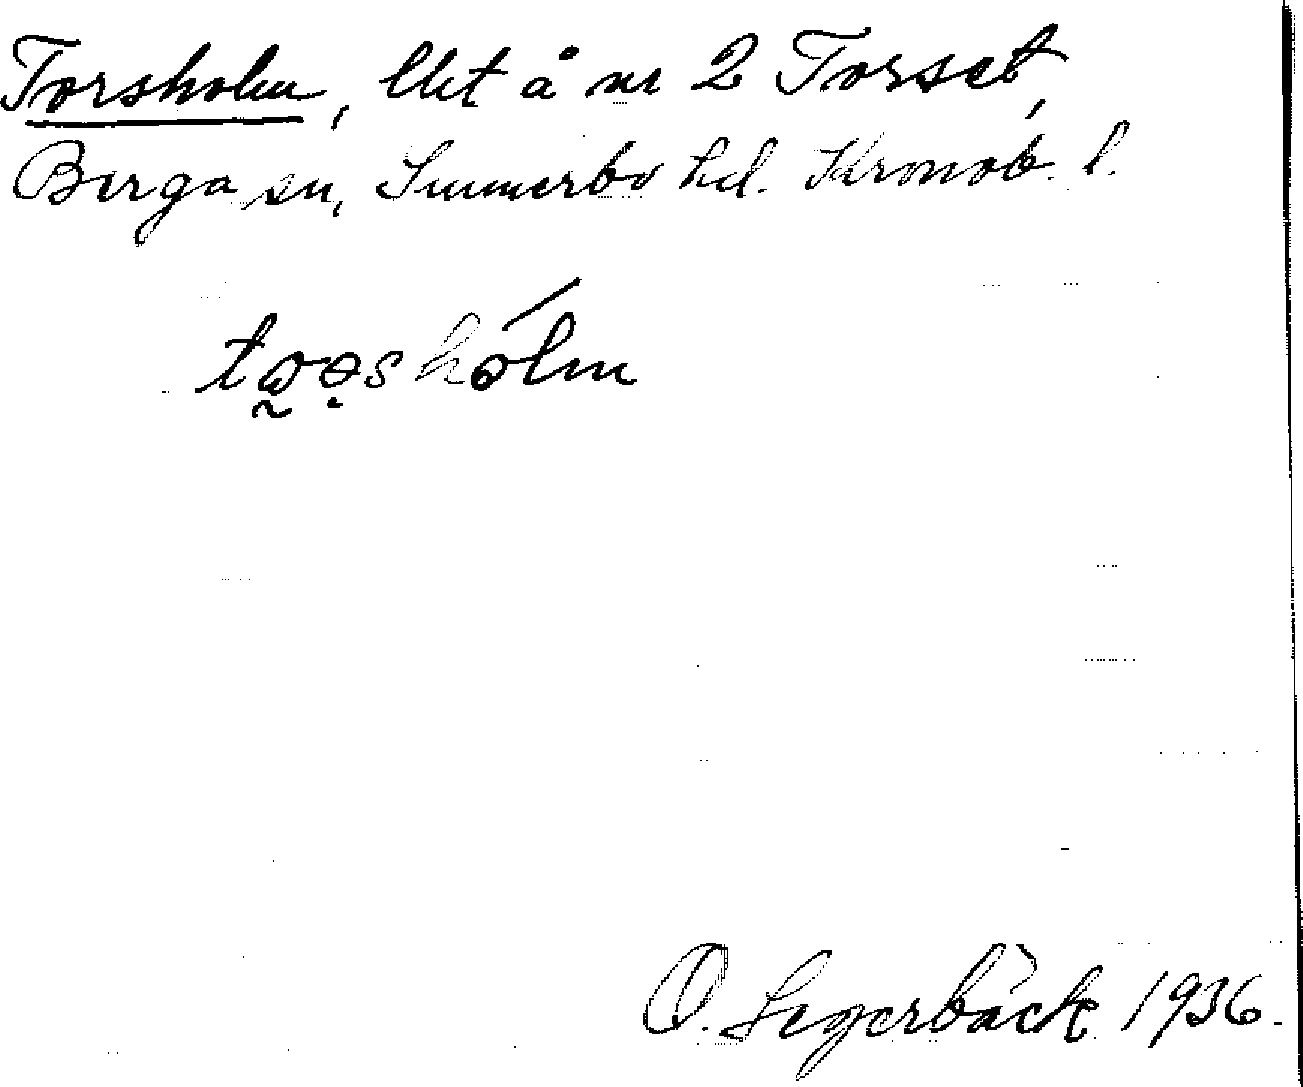 Torsholm, lht å nr 2 Torset,
Berga sn, Sunnerbo hd. Kronob. l.
tɷ̰ə̣shólm
O. Segerbäck 1936.